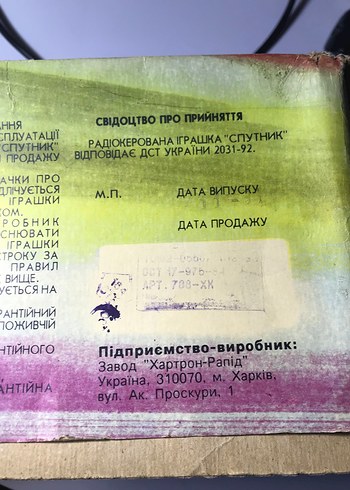 АННЯ
СПЛУАТАЦІЇ
"СПУТНИК"
ПРОДАЖУ
АЧКИ ПРО
ДЛІЧУЄТЬСЯ
ІГРАШКИ
КОМ.
РОБНИК
СНЮВАТИ
ІГРАШКИ
СТРОКУ ЗА
ПРАВИЛ
ВИЩЕ.
УЄТЬСЯ НА
РАНТІЙНИЙ
ПОЖИВЧІЙ
НТІЙНОГО
АНТІЙНА
СВІДОЦТВО ПРО ПРИЙНЯТТЯ
РАДІОКЕРОВАНА ІГРАШКА "СПУТНИК"
ВІДПОВІДАЄ ДСТ УКРАЇНИ 2031-92.
М.П. ДАТА ВИПУСКУ
ДАТА ПРОДАЖУ
АРТ. 708-ХК
Підприємство-виробник:
Завод "Хартрон-Рапід"
Україна, 310070, м. Харків,
вул. Ак. Проскури, 1